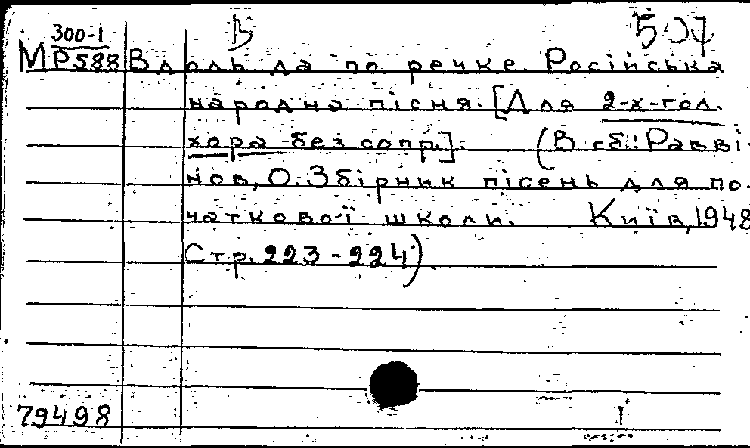 В 507
300-1
М Р588 Вдоль да по речке. Російська
народна пісня. [Для 2-х-гол.
хора без сопр.]. (В сб.: Раввi-
нов, О. Збірник пісень для по-
чаткової школи. Київ, 1948
Стр. 223-224)
79498 I